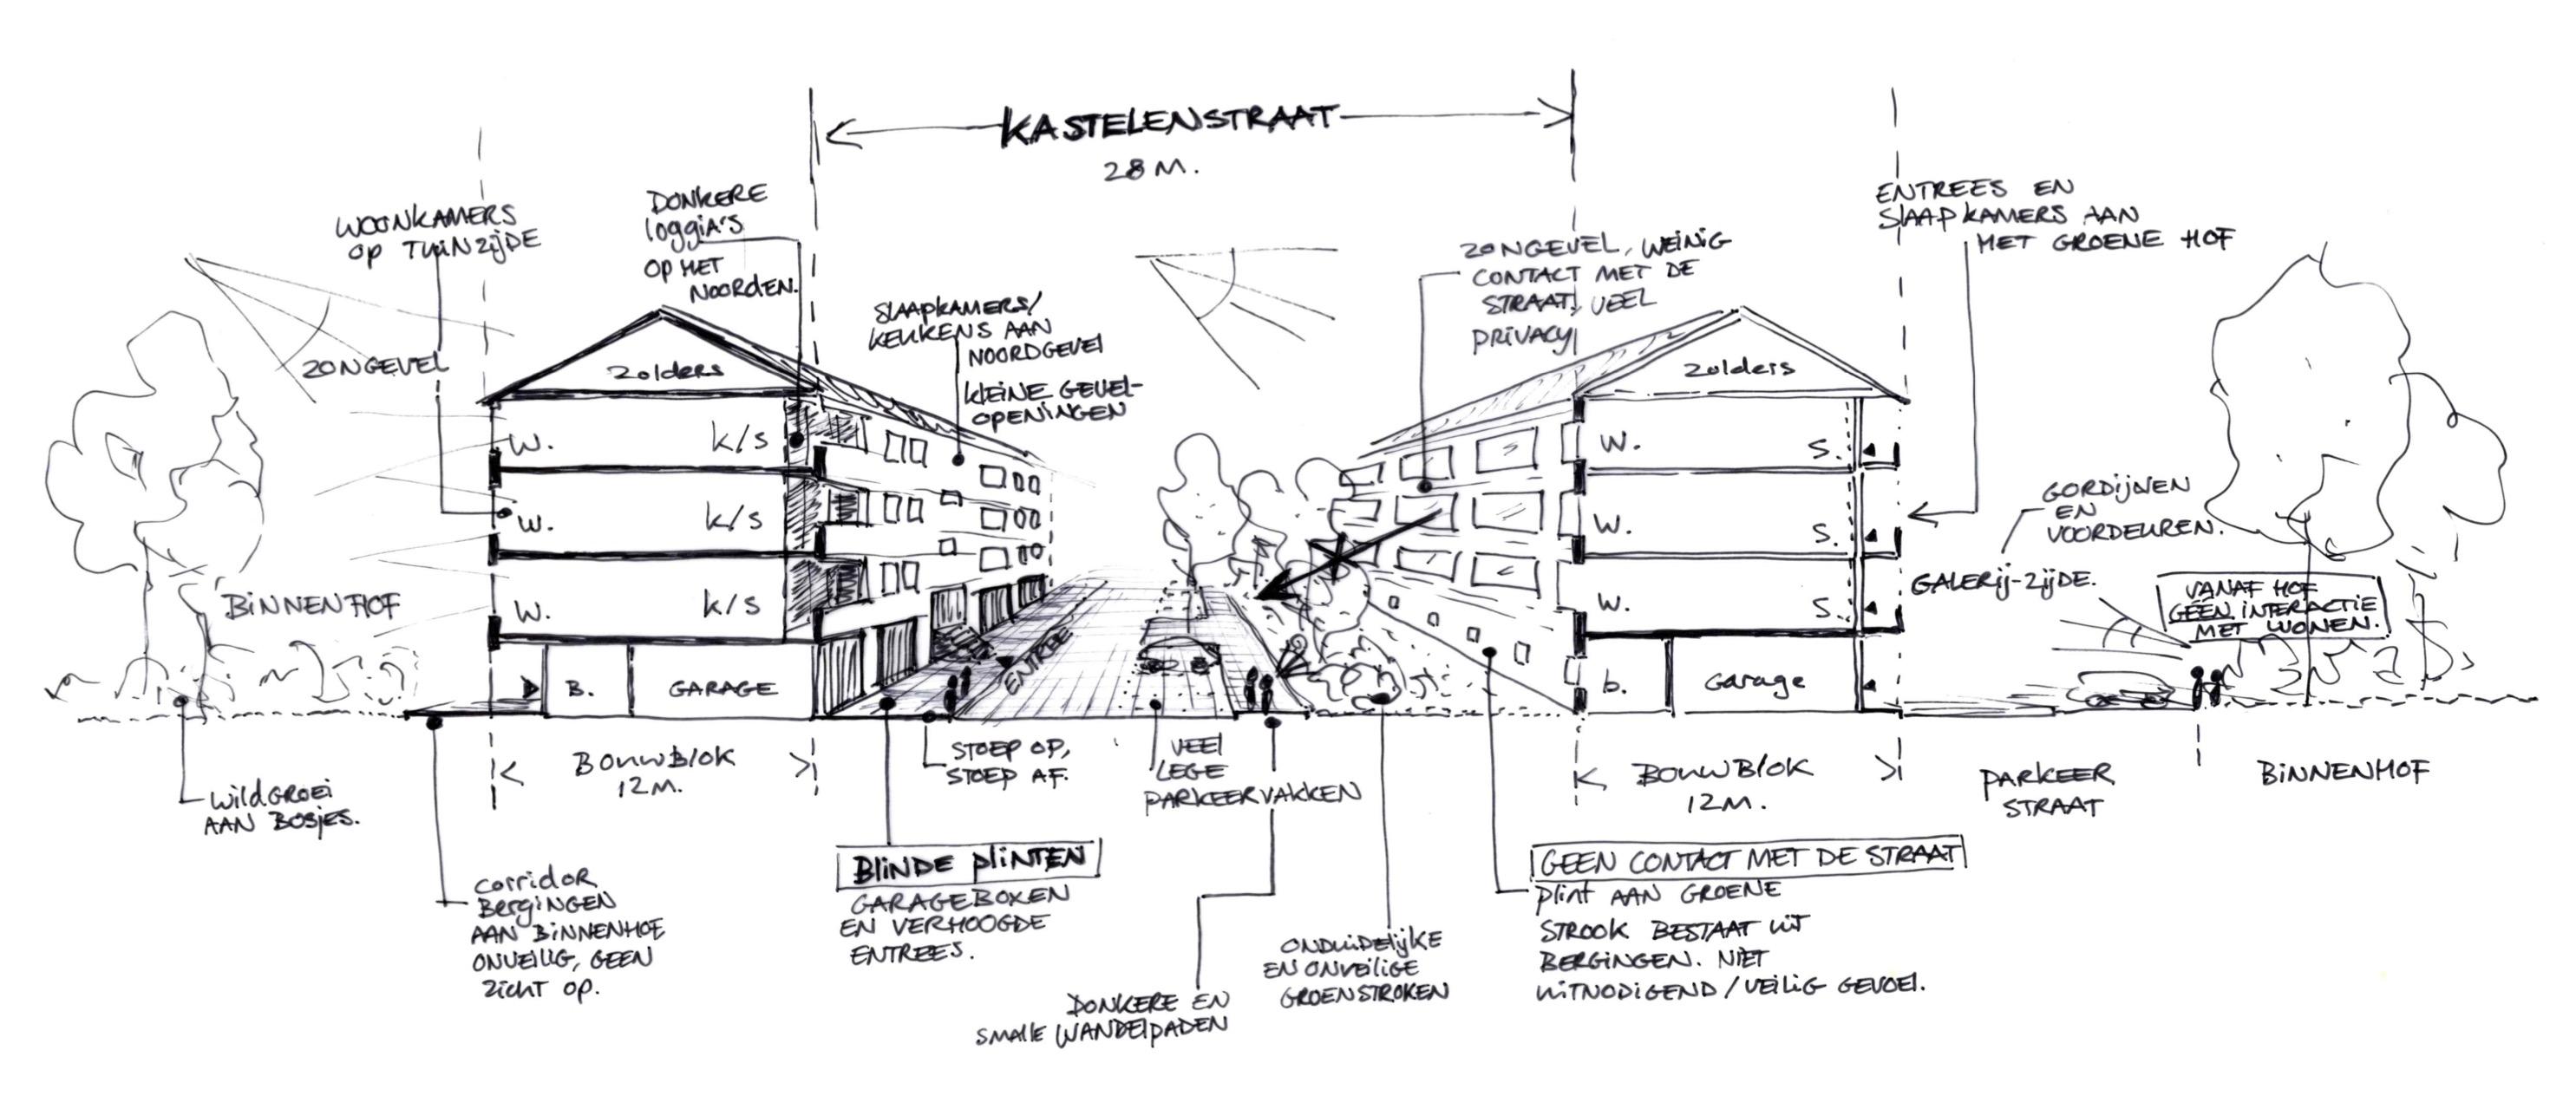 KASTELENSTRAAT
28 M.
WOONKAMERS
OP TUINZIJDE
DONKERE
LOGGIA'S
OP HET
NOORDEN.
SLAAPKAMERS/
KEUKENS AAN
NOORDGEVEL
KLEINE GEVEL-
OPENINGEN
ZONGEVEL, WEINIG
CONTACT MET DE
STRAAT, VEEL
PRIVACY
ENTREES EN
SLAAPKAMERS AAN
HET GROENE HOF
ZONGEVEL
Zolders
Zolders
W.
k/s
W.
k/s
W.
k/s
B.
GARAGE
ENTREE
W.
S.
W.
S.
W.
S.
b.
Garage
GORDIJNEN
EN
VOORDEUREN.
GALERIJ-ZIJDE.
VANAF HOF
GEEN INTERACTIE
MET WONEN.
BINNENHOF
BOUWBLOK
12 M.
STOEP OP,
STOEP AF.
VEEL
LEGE
PARKEERVAKKEN
BOUWBLOK
12 M.
PARKEER
STRAAT
BINNENHOF
WILDGROEI
AAN BOSJES.
CORRIDOR
BERGINGEN
AAN BINNENHOF
ONVEILIG, GEEN
ZICHT OP.
BLINDE PLINTEN
GARAGEBOXEN
EN VERHOOGDE
ENTREES.
DONKERE EN
SMALLE WANDELPADEN
ONDUIDELIJKE
EN ONVEILIGE
GROENSTROKEN
GEEN CONTACT MET DE STRAAT
PLINT AAN GROENE
STROOK BESTAAT UIT
BERGINGEN. NIET
UITNODIGEND / VEILIG GEVOEL.